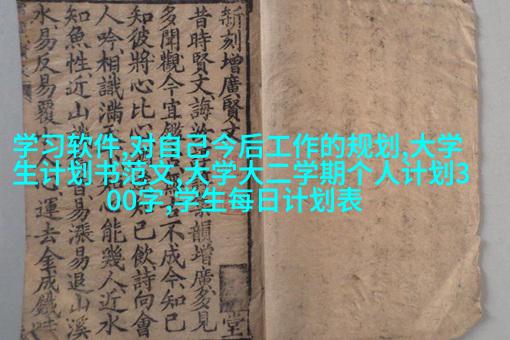 学习软件,对自己今后工作的规划,大学
生计划书范文,大学大二学期个人计划3
00字,学生每日计划表
新刻增廣賢文
昔時賢文誨韻增廣多見
多聞觀今宜鑑古不成今知己
知彼將心比心己飲詩向會
人吟相識滿心能幾人近水
知魚性近山易漲易退山溪
水易反易覆運去金成鐵時
堂